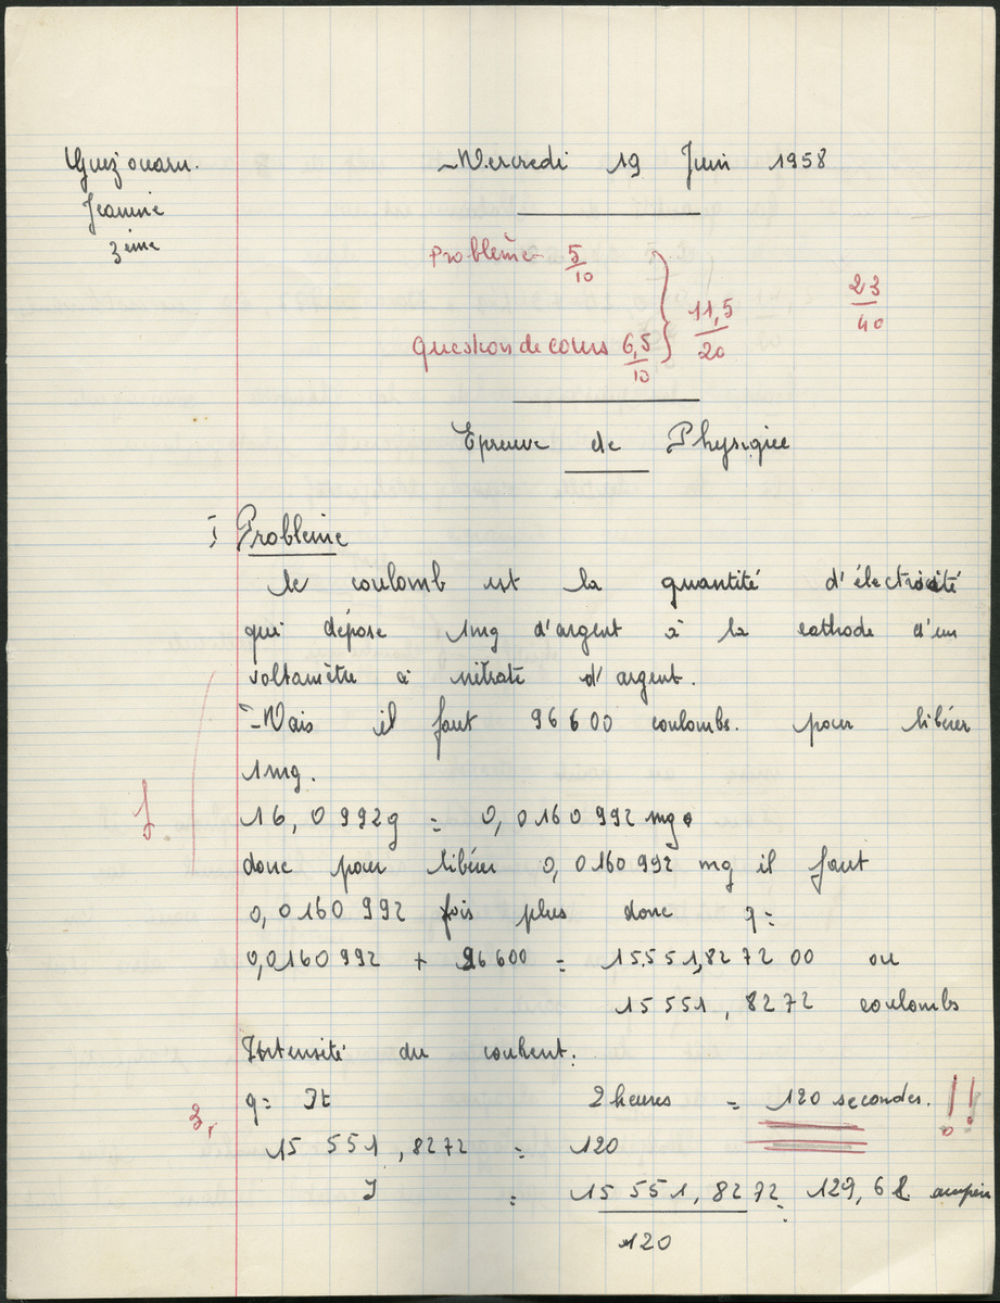 Guézouarn.
Jeannie
3ème
Mercredi 19 Juin 1958
Problème 5/10
Question de cours 6,5/10
11,5/20
23/40
Epreuve de Physique
I Problème
le coulomb est la quantité d'électricité
qui dépose 1mg d'argent à la cathode d'un
voltamètre à nitrate d'argent.
Mais il faut 96600 coulombs. pour libérer
1mg.
1
16,0992g = 0,0160992 mg
donc pour libérer 0,0160992 mg il faut
0,0160992 fois plus donc q =
0,0160992 + 96600 = 15551,827200 ou
15 551,8272 coulombs
Intensité du courent.
q = It 2 heures = 120 secondes. !!
3,
15 551,8272 = 120
I = 15 551,8272 = 129,6 ampères
120